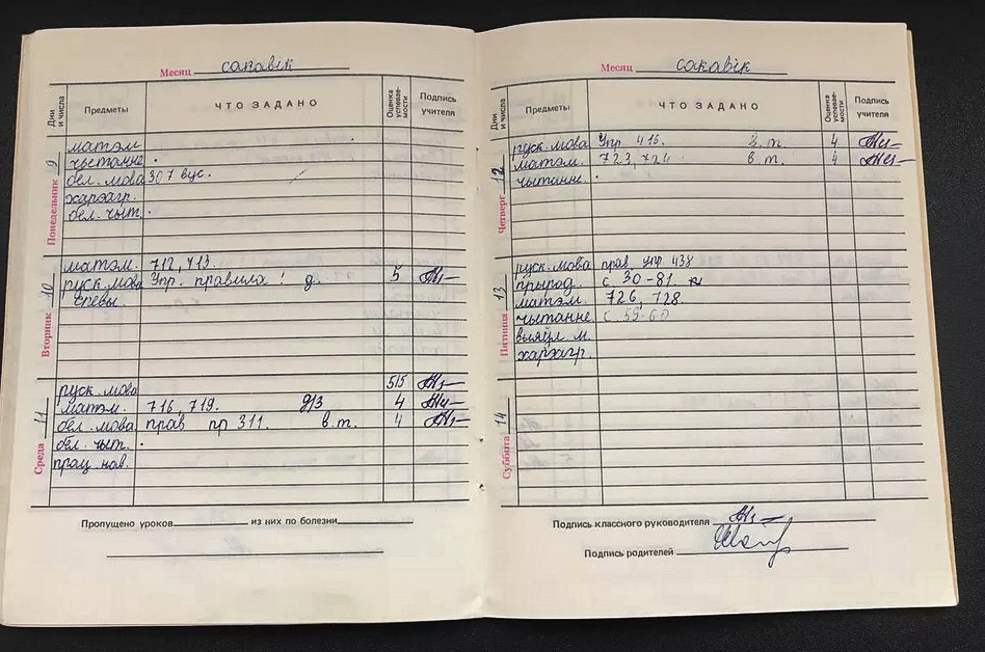 Месяц сакавік
Дни и числа Предметы ЧТО ЗАДАНО Оценка успевае-мости Подпись учителя
Понедельник 9
матэм.
чытанне.
бел. мова 307 вус.
хараагр.
бел. чыт.
Вторник 10
матэм. 712, 713.
руск. мова Упр. правила! д. 5
спевы.
Среда 11
руск. мова 5/5
матэм. 716, 719. д/з 4
бел. мова прав пр 311. в.т. 4
бел. чыт.
прац. нав.
Пропущено уроков из них по болезни
Месяц сакавік
Дни и числа Предметы ЧТО ЗАДАНО Оценка успевае-мости Подпись учителя
Четверг 12
руск. мова Упр 415. в.т. 4
матэм. 723, 724 в.т. 4
чытанне.
Пятница 13
руск. мова прав упр 438
прырод. с. 30-81.
матэм. 726, 728.
чытанне. с. 59-60
выяўл м.
хараагр.
Суббота 14
Подпись классного руководителя
Подпись родителей